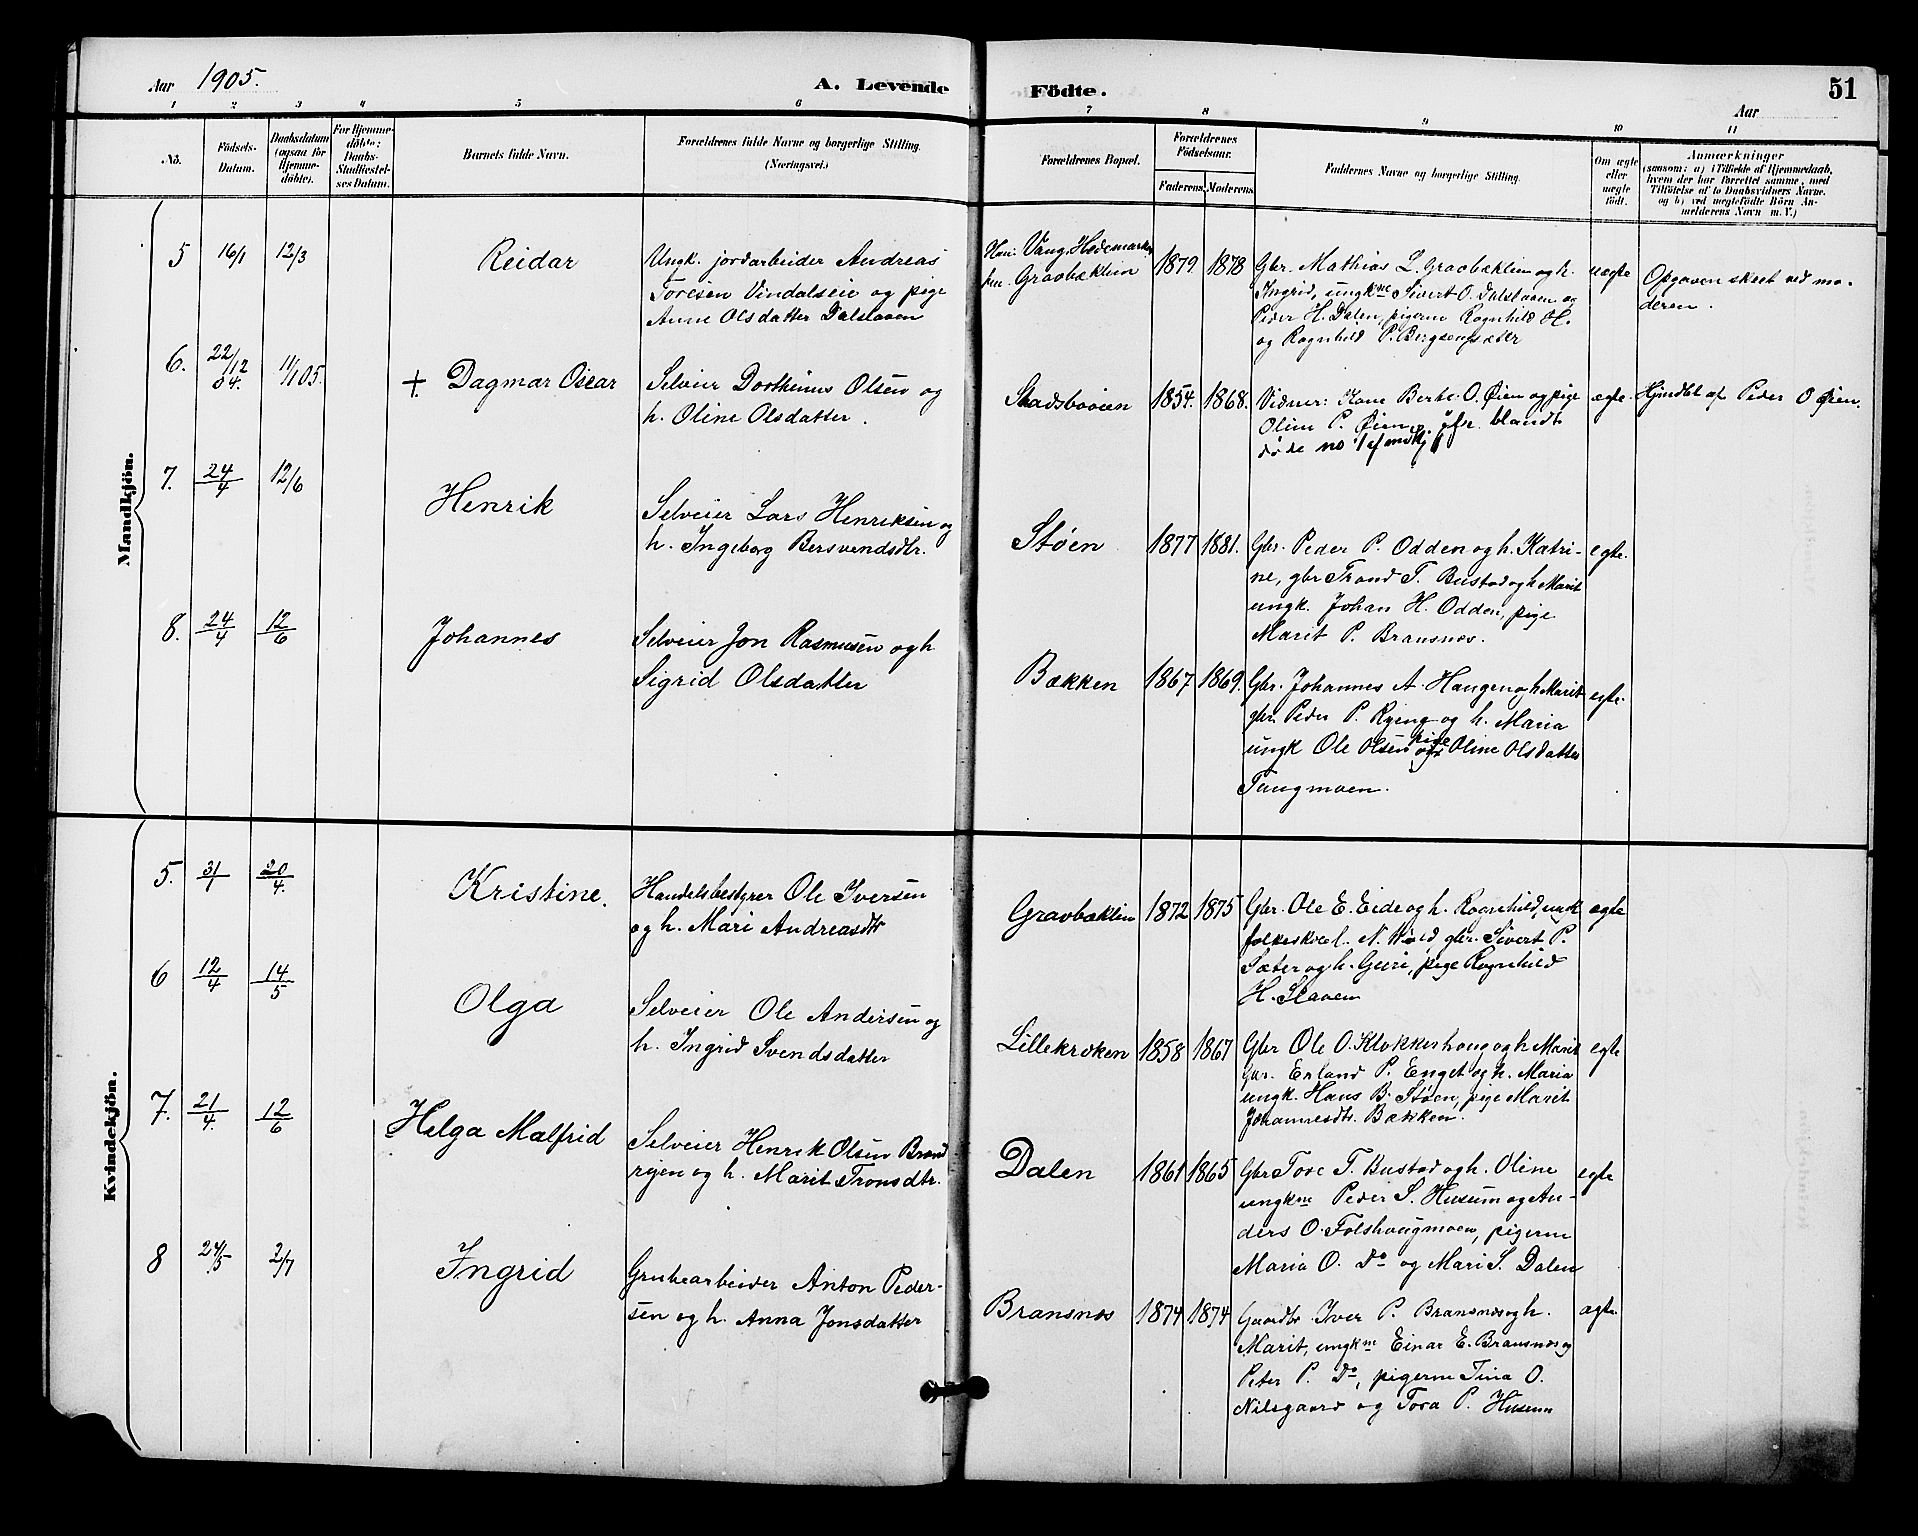 Aar 1905.
A. Levende
Födte.
Aar
51
1 2 3 4 5 6
7 8 9 10 11
No.
Födsels-
Datum.
Daabsdatum
(ogsaa for
Hjemme-
döbte).
For Hjemme-
döbte:
Daabs-
Stadfæstel-
ses Datum.
Barnets fulde Navn.
Forældrenes fulde Navne og borgerlige Stilling.
(Næringsvei.)
Forældrenes Bopæl.
Forældrenes
Födselsaar.
Faderens. Moderens.
Faddernes Navne og borgerlige Stilling.
Om ægte
eller
uægte
födt.
Anmærkninger
(saasom: a) i Tilfælde af Hjemmedaab,
hvem der har forrettet samme, med
Tilföielse af to Daabsvidners Navne.
og b) ved uægtefödte Börn An-
melderens Navn m. V.)
Mandkjön.
5 16/1 12/3
Reidar
Ungk. jordarbeider Andreas
Toresen Vindalseie og pige
Anne Olsdatter Dalslaaen
Han: Vang, Hedemarken
hun: Graobæklien
1879 1878
Gbr. Mathias L. Graobæklien og h.
Ingrid, ungkne Sivert O. Dalslaaen og
Peder H. Dalen, pigerne Ragnhild H.
og Ragnhild P. Bergsengsæter
uægte
Opgaven skeet ved mo-
deren.
6. 22/12 04. 11/1 05.
+ Dagmar Oscar
Selveier Dortheinus Olsen og
h. Oline Olsdatter.
Stadsbuøien
1854. 1868.
Vidner: Kone Berte O. Øien og pige
Oline P. Øien. blandt
døde no 1 af mdkj
ægte
Hjmdbt af Peder O Øien.
7. 24/4 12/6
Henrik
Selveier Lars Henriksen og
h. Ingeborg Bersvendsdtr.
Støen
1877 1881.
Gbr. Peder P. Odden og h. Katri-
ne, gbr Trond T. Bustad og h Marit
ungk. Johan H. Odden, pige
Marit P. Bransnes.
egte.
8. 24/4 12/6
Johannes
Selveier Jon Rasmusen og h
Sigrid Olsdatter
Bækken
1867 1869.
Gbr. Johannes A. Haugen og h Marit
gbr. Peder P. Ryeng og h. Maria
ungk Ole Olsen og pige Oline Olsdatter
Tangmoen.
egte.
Kvindekjön.
5. 31/1 20/4.
Kristine.
Handelsbestyrer Ole Iversen
og h. Mari Andreasdtr
Graobæklien
1872 1875
Gbr. Ole E. Eide og h. Ragnhild, unk
folkeskoel. N. Wold, gbr. Sivert P.
Sæter og h. Guri, pige Ragnhild
H. Slaaen
ægte
6 12/4 14/5
Olga
Selveier Ole Andersen og
h. Ingrid Svendsdatter
Lillekroken
1858 1867
Gbr Ole O. Klokkerhaug og h Marit
gbr. Erland P. Enget og h. Maria
ungk. Hans B. Støen, pige Marit
Johannesdtr. Bækken.
egte
7. 21/4. 12/6
Helga Malfrid
Selveier Henrik Olsen Brænd
ryen og h. Marit Tronsdtr.
Dalen
1861 1865
Gbr Tore T. Bustad og h. Oline
ungkne Peder S. Husum og An-
ders O. Folshaugmoen, pigerne
Maria O. Do og Mari S. Dalen
egte
8 24/5 2/7
Ingrid
Grubearbeider Anton Peder-
sen og h. Anna Jonsdatter
Bransnes
1874 1874
Gaardbr. Iver P. Bransnes og h.
Marit, ungkne Einar E. Bransnes og
Peter P. Do, pigerne Tina O.
Nilsgaard og Tora P. Husum
ægte.